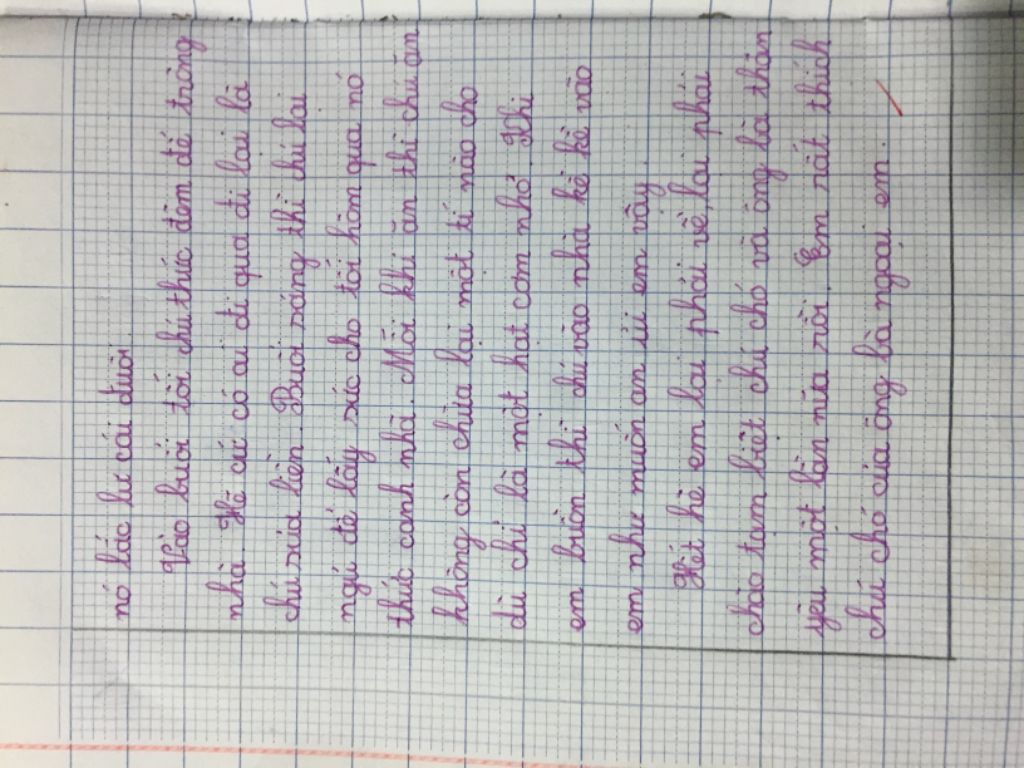 nó lắc lư cái đuôi
Vào buổi tối chú thức đêm để trông
nhà. Hễ cứ có ai đi qua đi lại là
chú sủa liền. Buổi sáng thì chú lại
ngủ để lấy sức cho tối hôm qua nó
thức canh nhà. Mỗi khi ăn thì chú ăn
không còn chừa lại một tí nào cho
dù chỉ là một hạt cơm nhỏ. Khi
em buồn thì chú vào nhà kề kề vào
em như muốn an ủi em vậy.
Hết hè em lại phải về lại phải
chào tạm biệt chú chó và ông bà thân
yêu một lần nữa rồi. Em rất thích
chú chó của ông bà ngoại em.